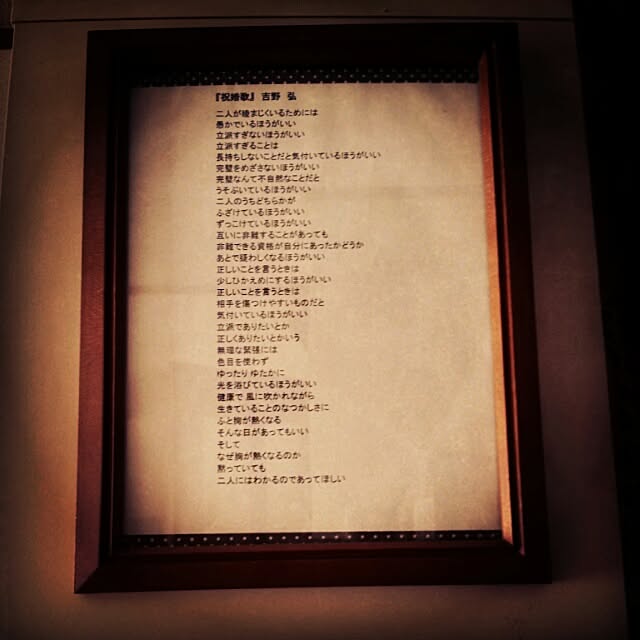 『祝婚歌』 吉野 弘
二人が睦まじくいるためには
愚かでいるほうがいい
立派すぎないほうがいい
立派すぎることは
長持ちしないことだと気付いているほうがいい
完璧をめざさないほうがいい
完璧なんて不自然なことだと
うそぶいているほうがいい
二人のうちどちらかが
ふざけているほうがいい
ずっこけているほうがいい
互いに非難することがあっても
非難できる資格が自分にあったかどうか
あとで疑わしくなるほうがいい
正しいことを言うときは
少しひかえめにするほうがいい
正しいことを言うときは
相手を傷つけやすいものだと
気付いているほうがいい
立派でありたいとか
正しくありたいとかいう
無理な緊張には
色目を使わず
ゆったり ゆたかに
光を浴びているほうがいい
健康で 風に吹かれながら
生きていることのなつかしさに
ふと胸が熱くなる
そんな日があってもいい
そして
なぜ胸が熱くなるのか
黙っていても
二人にはわかるのであってほしい